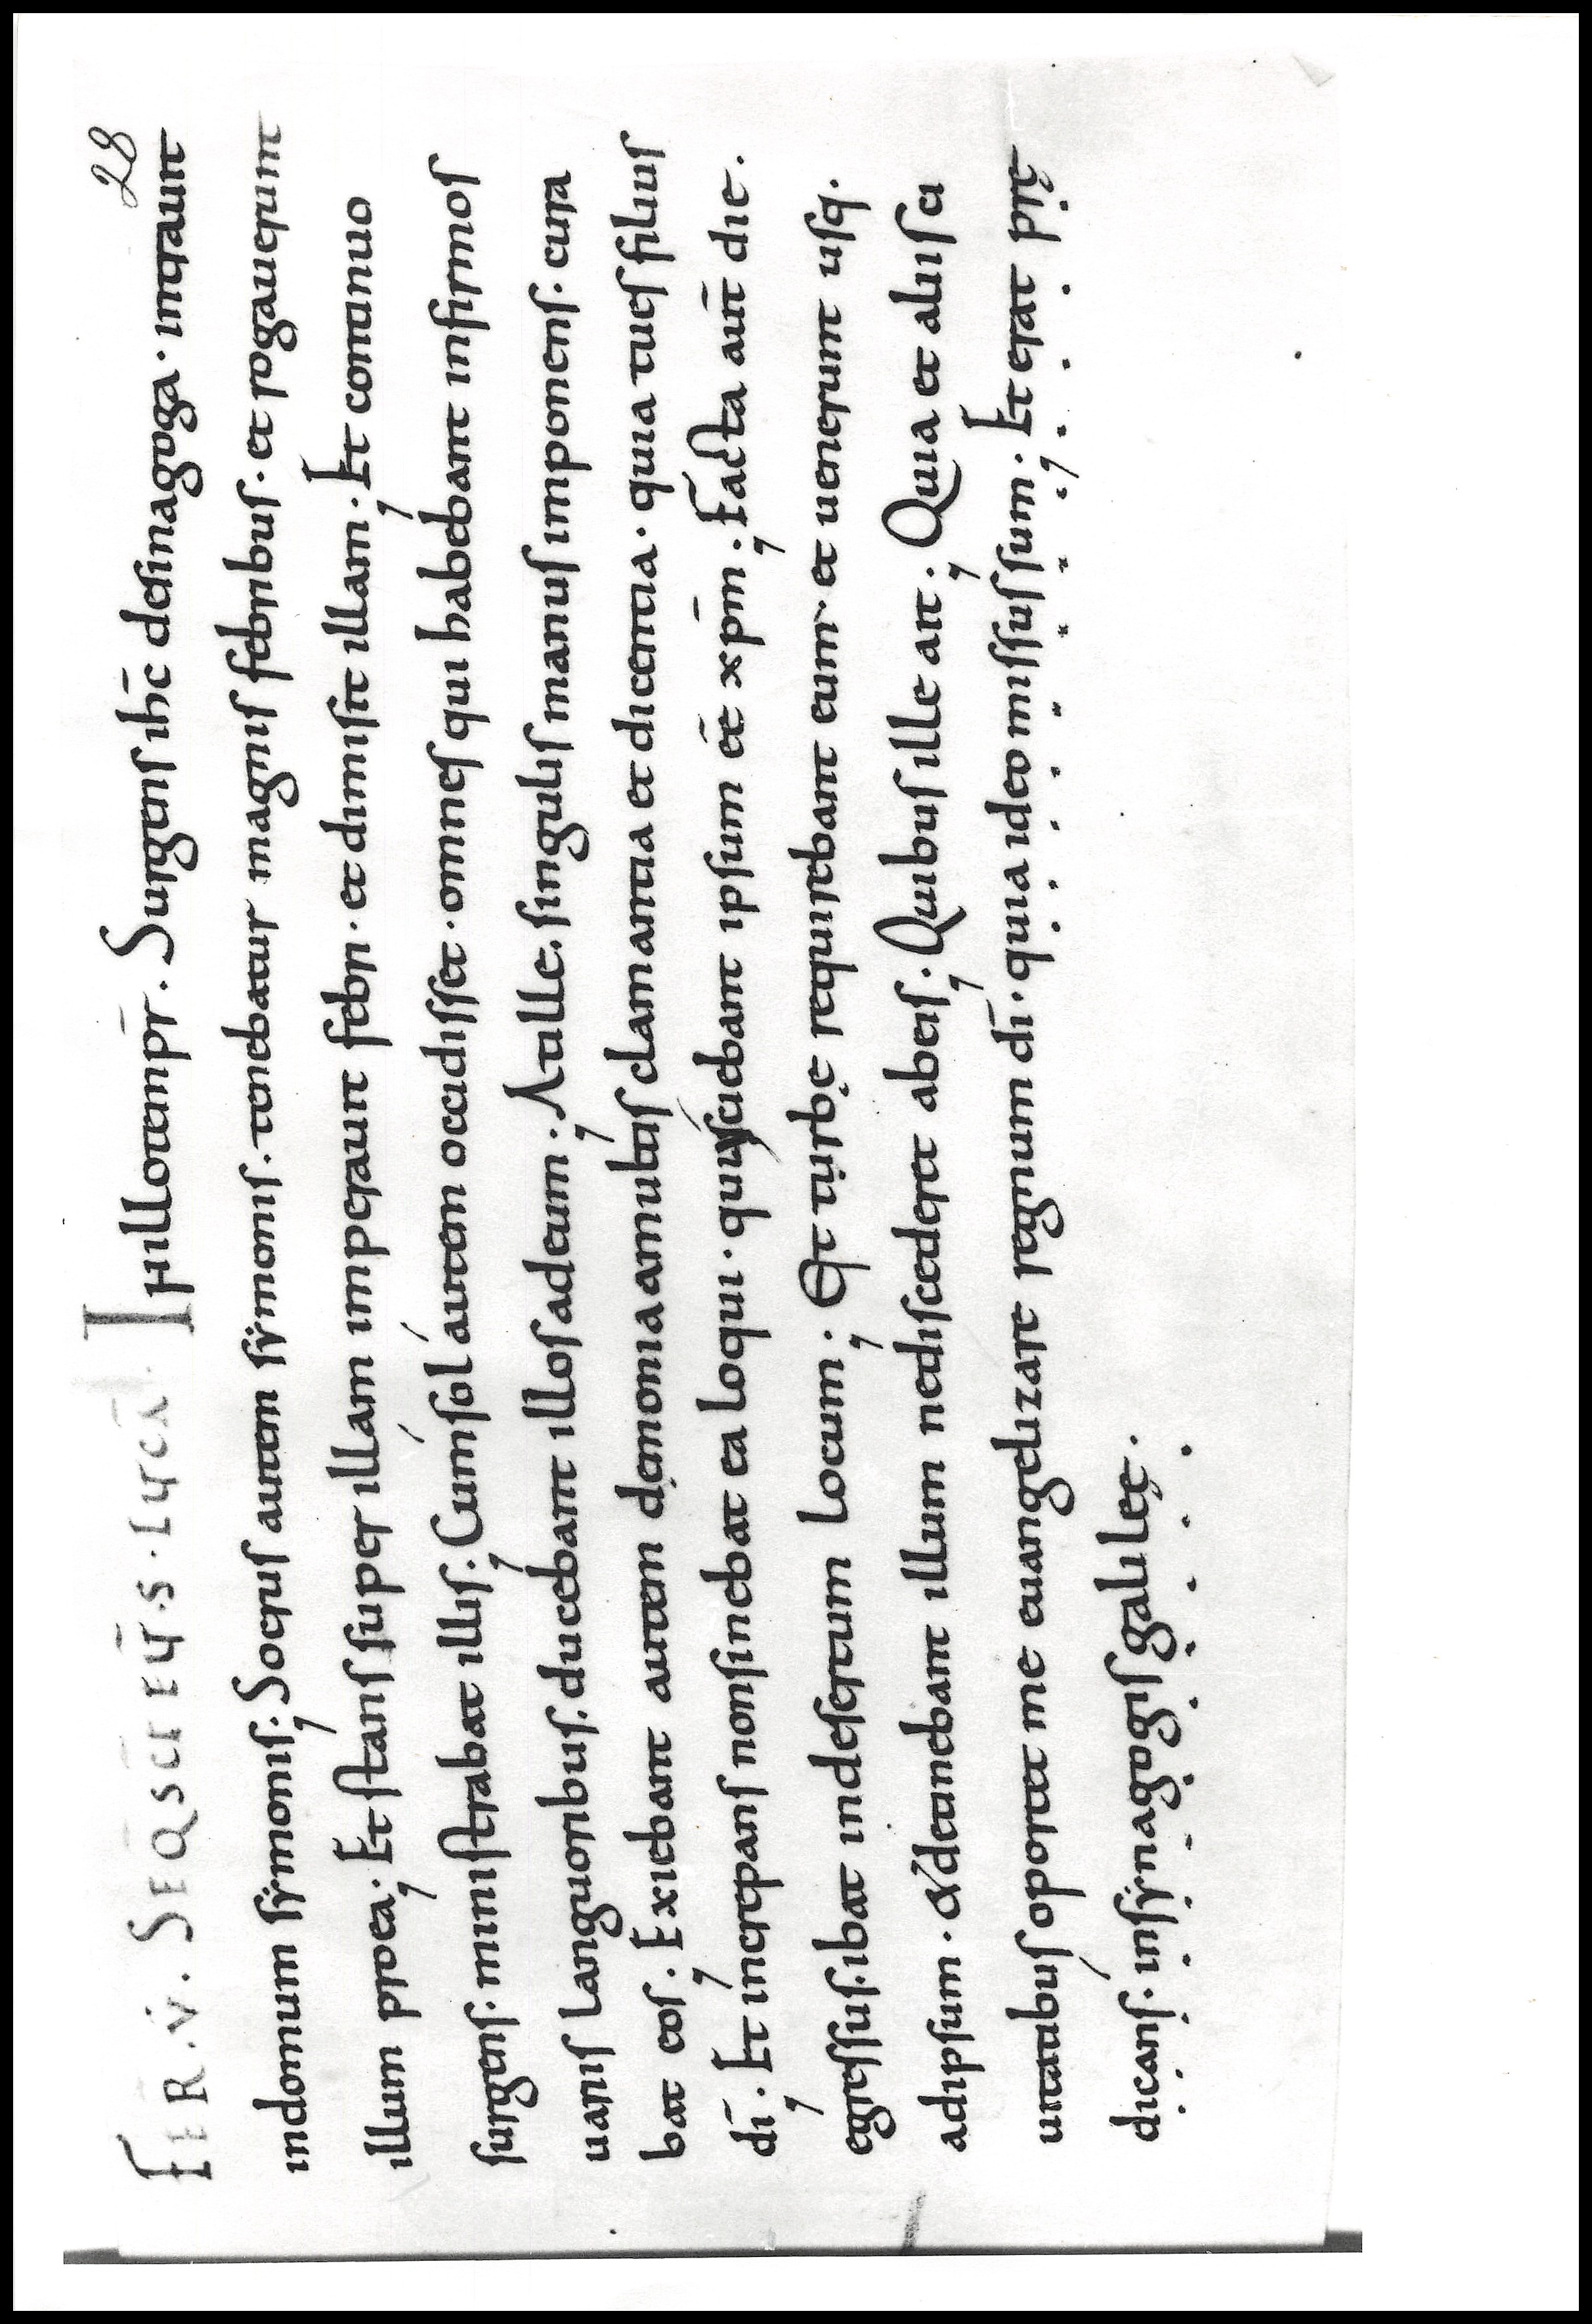 28
FER̄. V̇. SEQ̄ SCI EṼ. S. LUCĀ. IN illo temp̄r. Surgens ih̄c desinagoga. intrauit
indomum sẏmonis. Socrus autem sẏmonis. tenebatur magnis febribus. et rogauerunt
illum proea. Et stans super illam imperauit febri. et dimisit illam. Et continuo
surgens. ministrabat illis. Cum sol autem occidisset. omnes qui habebant infirmos
uariis languoribus. ducebant illos adeum. At ille. singulis manus imponens. cura
bat eos. Exiebant autem dęmonia amultis clamantia et dicentia. quia tu es filius
dī. Et increpans nonsinebat ea loqui. quia sciebant ipsum eē xp̄m. Facta aūt die.
egressus. ibat indesertum locum. Et turbę requirebant eum. et uenerunt usq;
adipsum. & detinebant illum nediscederet abeis. Quibus ille ait. Quia et aliis ci
uitatibus oportet me euangelizare regnum dī. quia ideo missus sum. Et erat prę
dicans. insẏnagogis galileę.